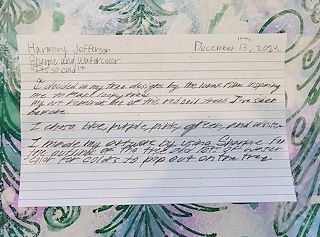 Harmony Jefferson
December 13, 2024
Sharpie and Watercolor
It's so cold
I decided on tree designs by the book Film inspiring
me to make
My art reminds me of the iced trees I've seen
before
I chose blue, purple, pink, green, and white
I made my artwork by using Sharpie for
the outline of the tree and lot of water
color for colors to pop out on the tree.